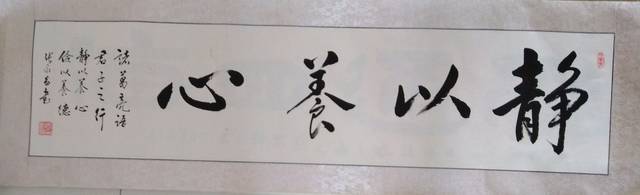 静以養心
诸葛亮语
君子之行
静以養心
俭以養德